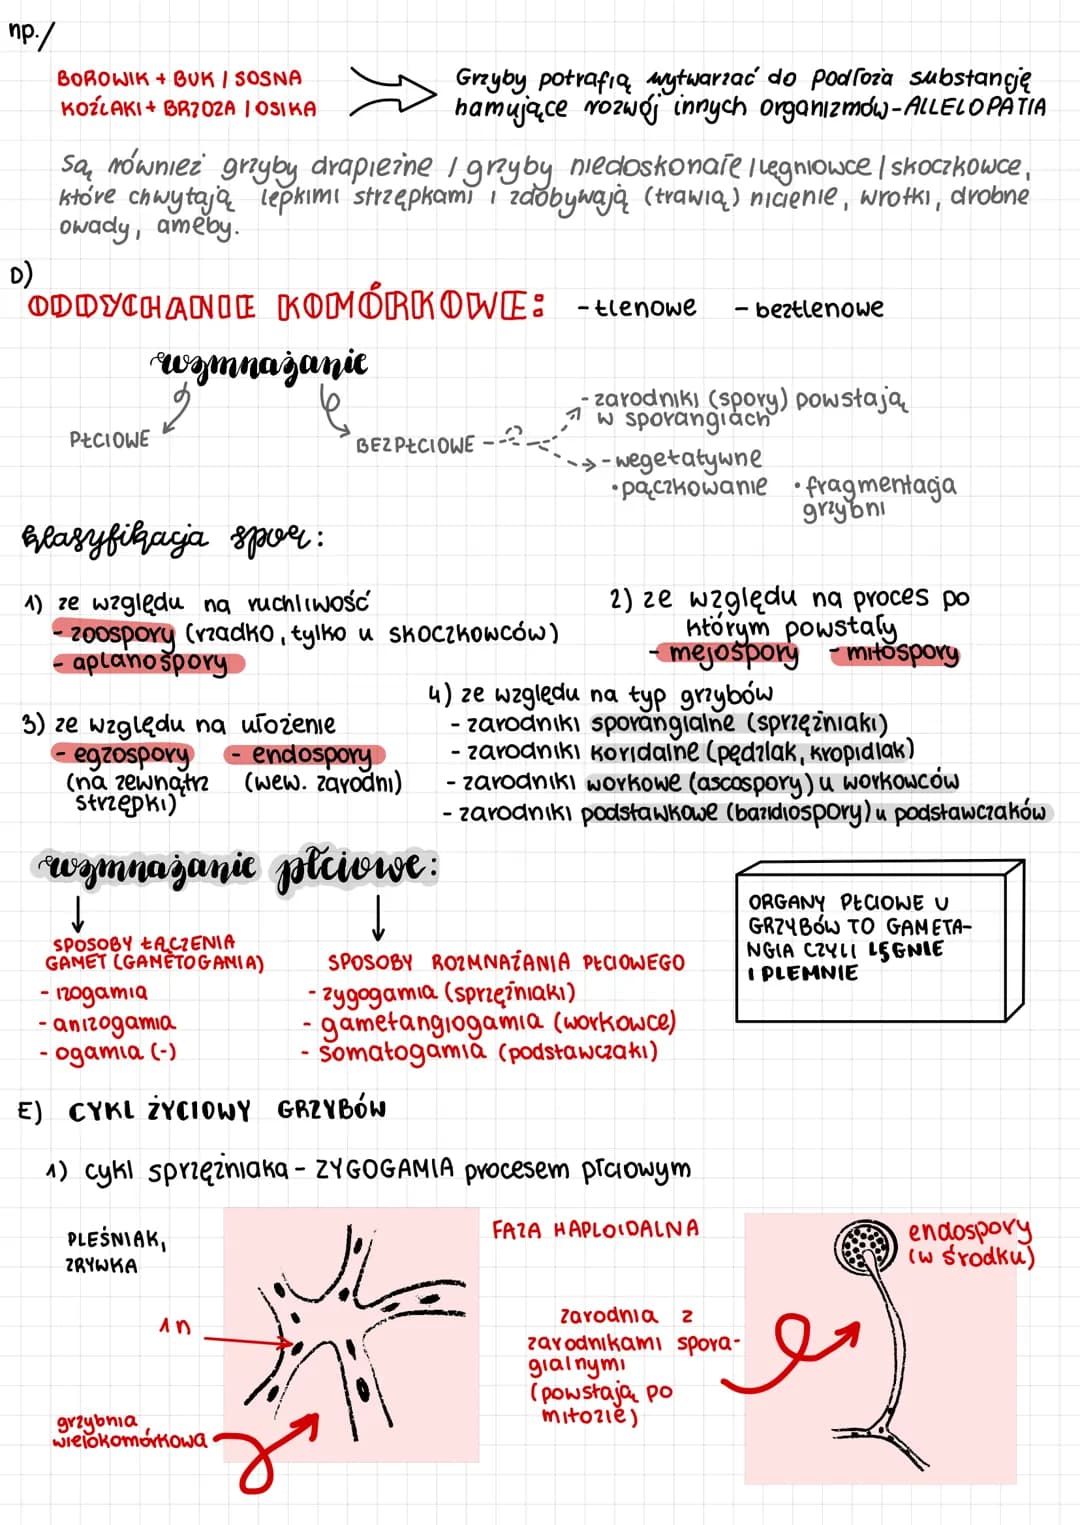 np./
BOROWIK + BUK / SOSNA
KOŹLAKI + BRZOZA / OSIKA
Grzyby potrafią wytwarzać do podłoża substancję
hamujące rozwój innych organizmów - ALLELOPATIA
Są również grzyby drapieżne / grzyby niedoskonałe / lęgniowce / skoczkowce,
które chwytają lepkimi strzępkami i zdobywają (trawią) nicienie, wrotki, drobne
owady, ameby.
D)
ODDYCHANIE KOMÓRKOWE: - tlenowe - beztlenowe
wzmnażanie
PŁCIOWE
BEZPŁCIOWE
- zarodniki (spory) powstają
w sporangiach
- wegetatywne
• pączkowanie • fragmentacja
grzybni
klasyfikacja spor:
1) ze względu na ruchliwość
- zoospory (rzadko, tylko u skoczkowców)
- aplanospory
2) ze względu na proces po
którym powstały
- mejospory - mitospory
3) ze względu na ułożenie
- egzospory - endospory
(na zewnątrz (wew. zarodni)
strzępki)
4) ze względu na typ grzybów
- zarodniki sporangialne (sprzężniaki)
- zarodniki koridalne (pędzlak, kropidlak)
- zarodniki workowe (ascospory) u workowców
- zarodniki podstawkowe (bazidiospory) u podstawczaków
wzmnażanie płciowe:
SPOSOBY ŁĄCZENIA
GAMET (GAMETOGAMIA)
- izogamia
- anizogamia
- ogamia (-)
SPOSOBY ROZMNAŻANIA PŁCIOWEGO
- zygogamia (sprzężniaki)
- gametangiogamia (workowce)
- somatogamia (podstawczaki)
ORGANY PŁCIOWE U
GRZYBÓW TO GAMETA-
NGIA CZYLI LĘGNIE
I PLEMNIE
E) CYKL ŻYCIOWY GRZYBÓW
1) cykl sprzężniaka - ZYGOGAMIA procesem płciowym
PLEŚNIAK,
ZRYWKA
1n
grzybnia
wielokomórkowa
FAZA HAPLOIDALNA
zarodnia z
zarodnikami spora-
gialnymi
(powstają po
mitozie)
endospory
(w środku)